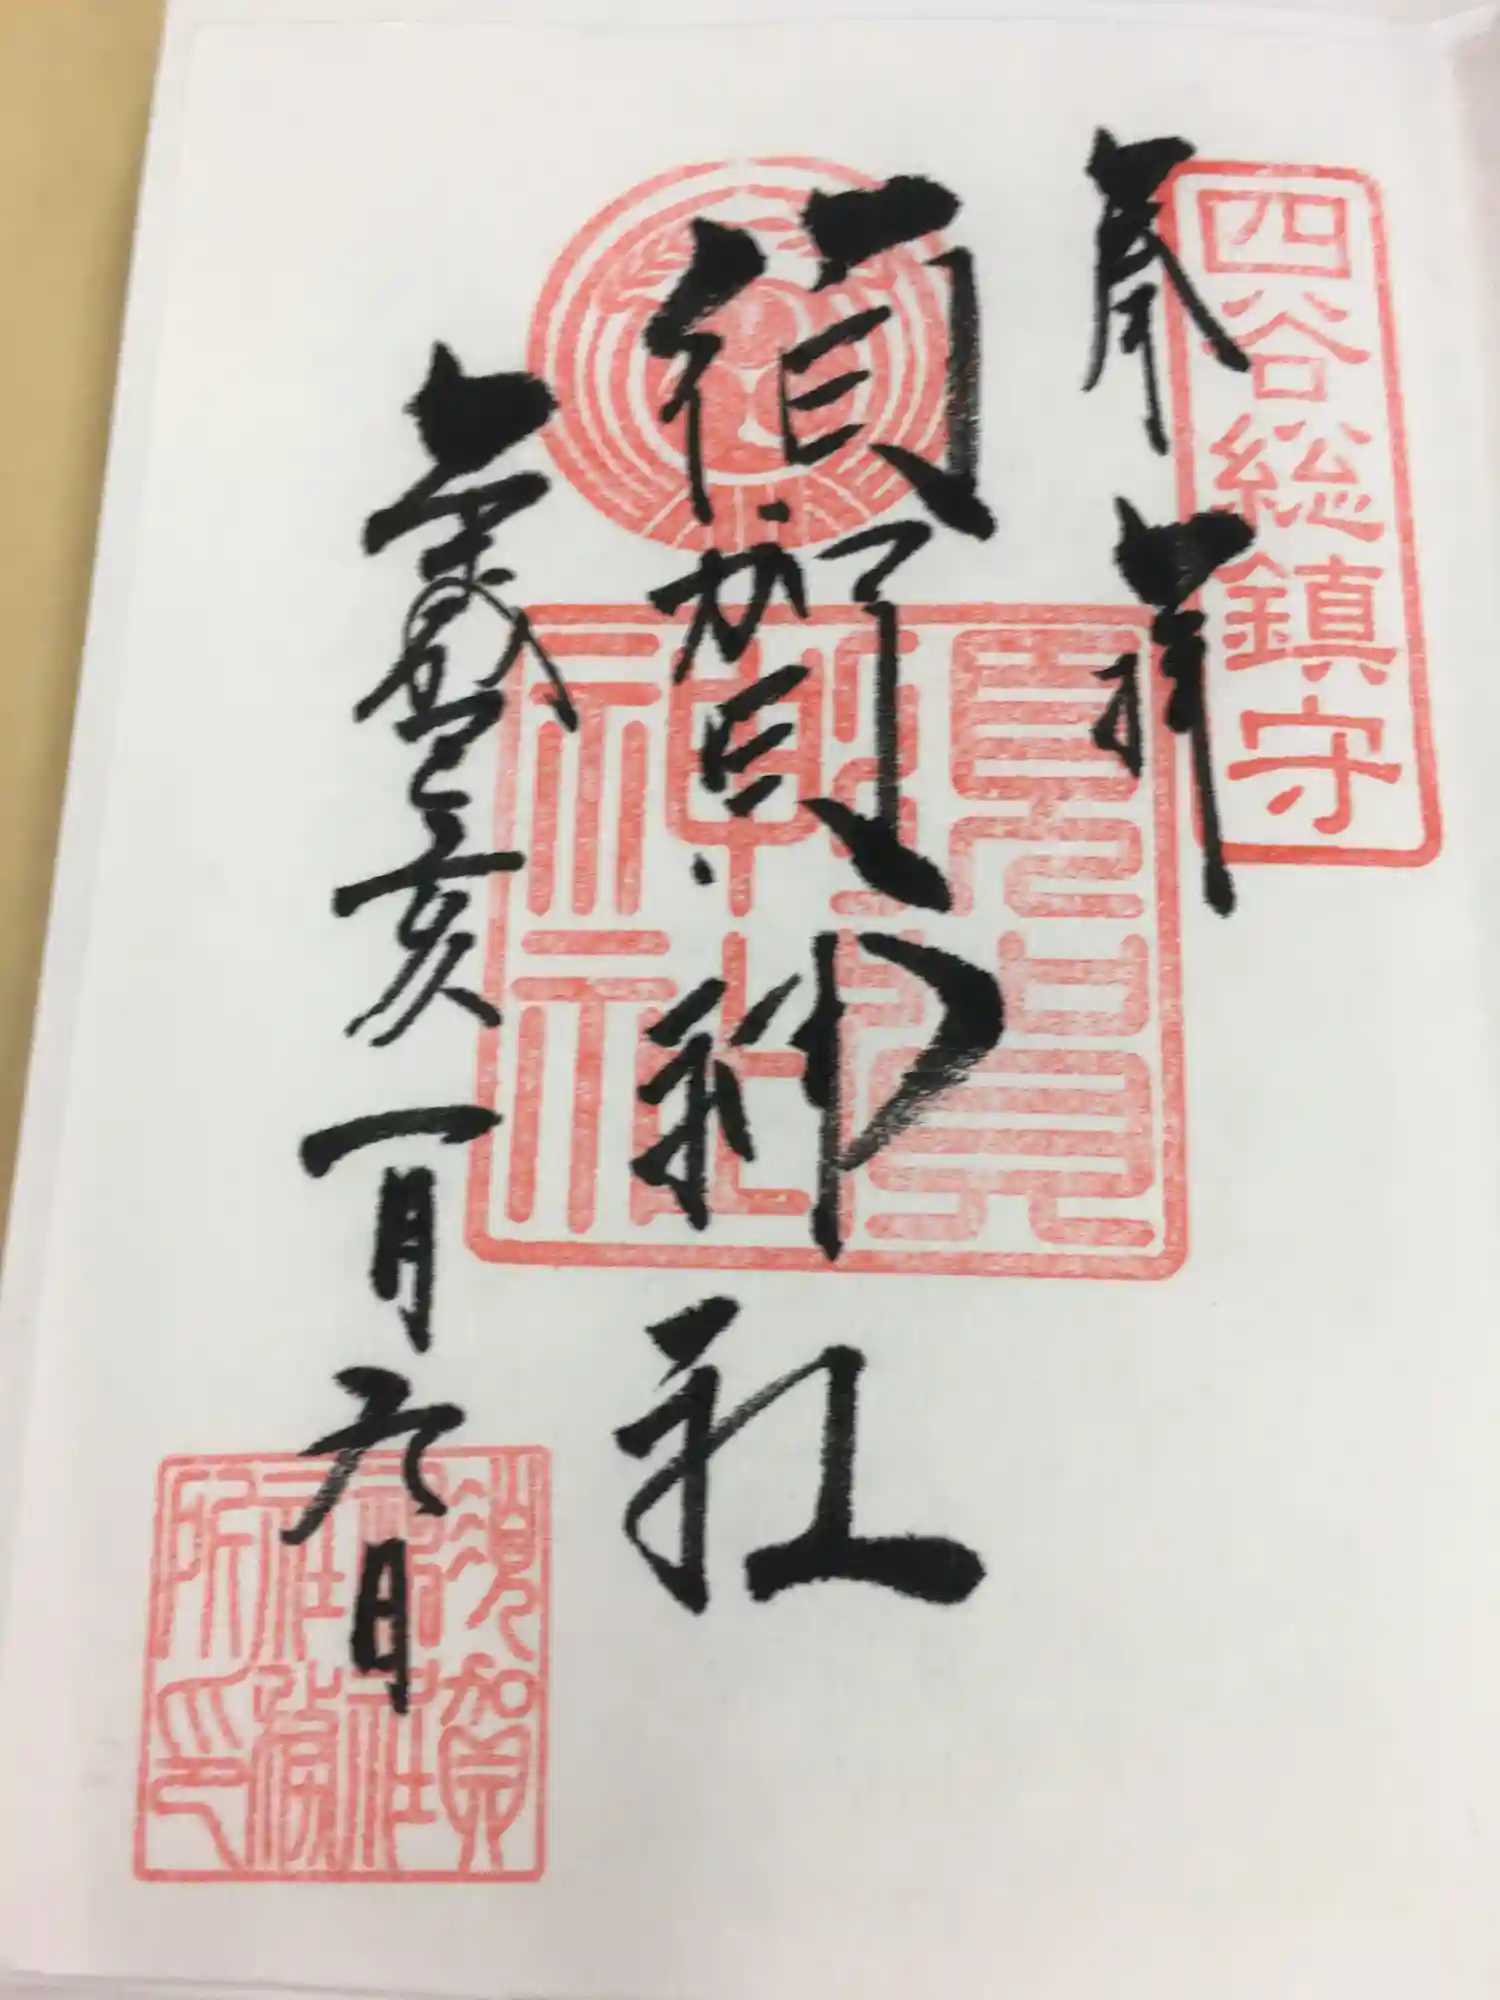 四谷総鎮守
奉拝
須賀神社
須賀神社
歳己亥一月日
須賀神社社務所印